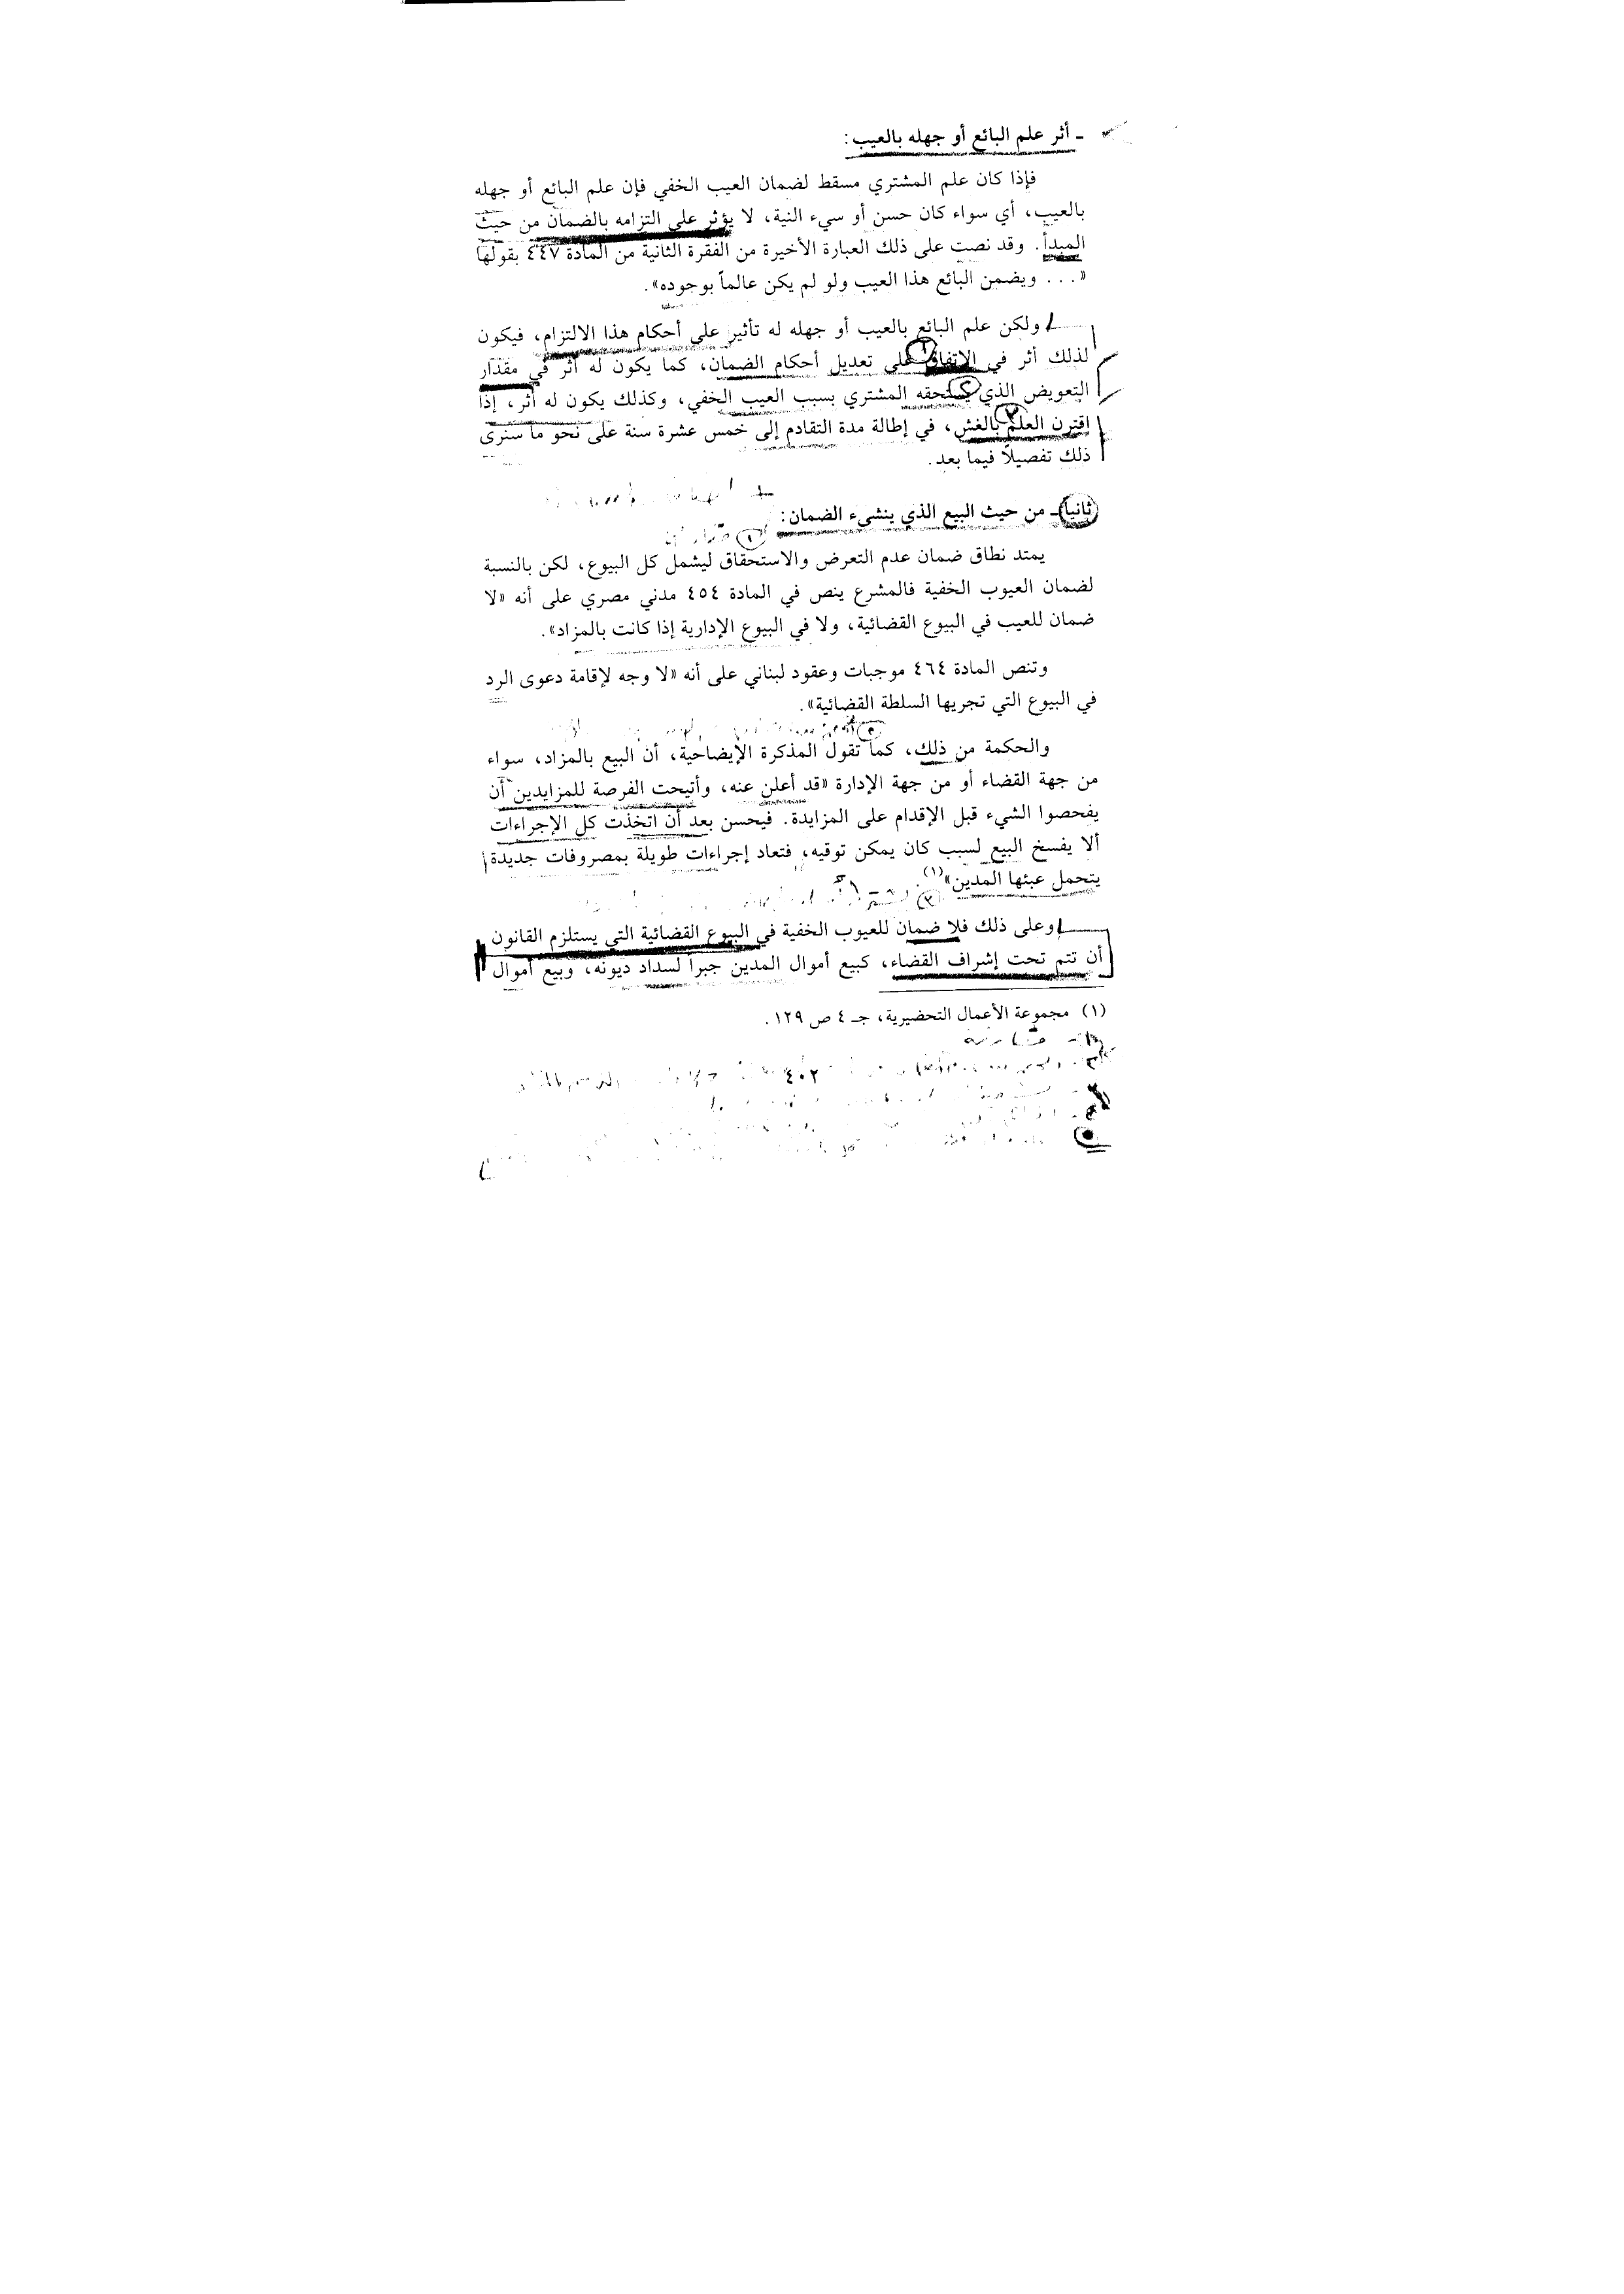 ـ أثر علم البائع أو جهله بالعيب:
فإذا كان علم المشتري مسقط لضمان العيب الخفي فإن علم البائع أو جهله
بالعيب، أي سواء كان حسن أو سيء النية، لا يؤثر على التزامه بالضمان من حيث
المبدأ. وقد نصت على ذلك العبارة الأخيرة من الفقرة الثانية من المادة ٤٤٧ بقولها
«... ويضمن البائع هذا العيب ولو لم يكن عالماً بوجوده».
ولكن علم البائع بالعيب أو جهله له تأثير على أحكام هذا الالتزام، فيكون
لذلك أثر في الاتفاق على تعديل أحكام الضمان، كما يكون له أثر في مقدار
التعويض الذي يستحقه المشتري بسبب العيب الخفي، وكذلك يكون له أثر، إذا
إقترن العلم بالغش، في إطالة مدة التقادم إلى خمس عشرة سنة على نحو ما سنرى
ذلك تفصيلاً فيما بعد.
ثانياً ـ من حيث البيع الذي ينشىء الضمان:
يمتد نطاق ضمان عدم التعرض والاستحقاق ليشمل كل البيوع، لكن بالنسبة
لضمان العيوب الخفية فالمشرع ينص في المادة ٤٥٤ مدني مصري على أنه «لا
ضمان للعيب في البيوع القضائية، ولا في البيوع الإدارية إذا كانت بالمزاد».
وتنص المادة ٤٦٤ موجبات وعقود لبناني على أنه «لا وجه لإقامة دعوى الرد
في البيوع التي تجريها السلطة القضائية».
والحكمة من ذلك، كما تقول المذكرة الإيضاحية، أن البيع بالمزاد، سواء
من جهة القضاء أو من جهة الإدارة «قد أعلن عنه، وأتيحت الفرصة للمزايدين أن
يفحصوا الشيء قبل الإقدام على المزايدة. فيحسن بعد أن اتخذت كل الإجراءات
ألا يفسخ البيع لسبب كان يمكن توقيه، فتعاد إجراءات طويلة بمصروفات جديدة
يتحمل عبئها المدين»(١).
وعلى ذلك فلا ضمان للعيوب الخفية في البيوع القضائية التي يستلزم القانون
أن تتم تحت إشراف القضاء، كبيع أموال المدين جبراً لسداد ديونه، وبيع أموال
(١) مجموعة الأعمال التحضيرية، جـ ٤ ص ١٢٩.